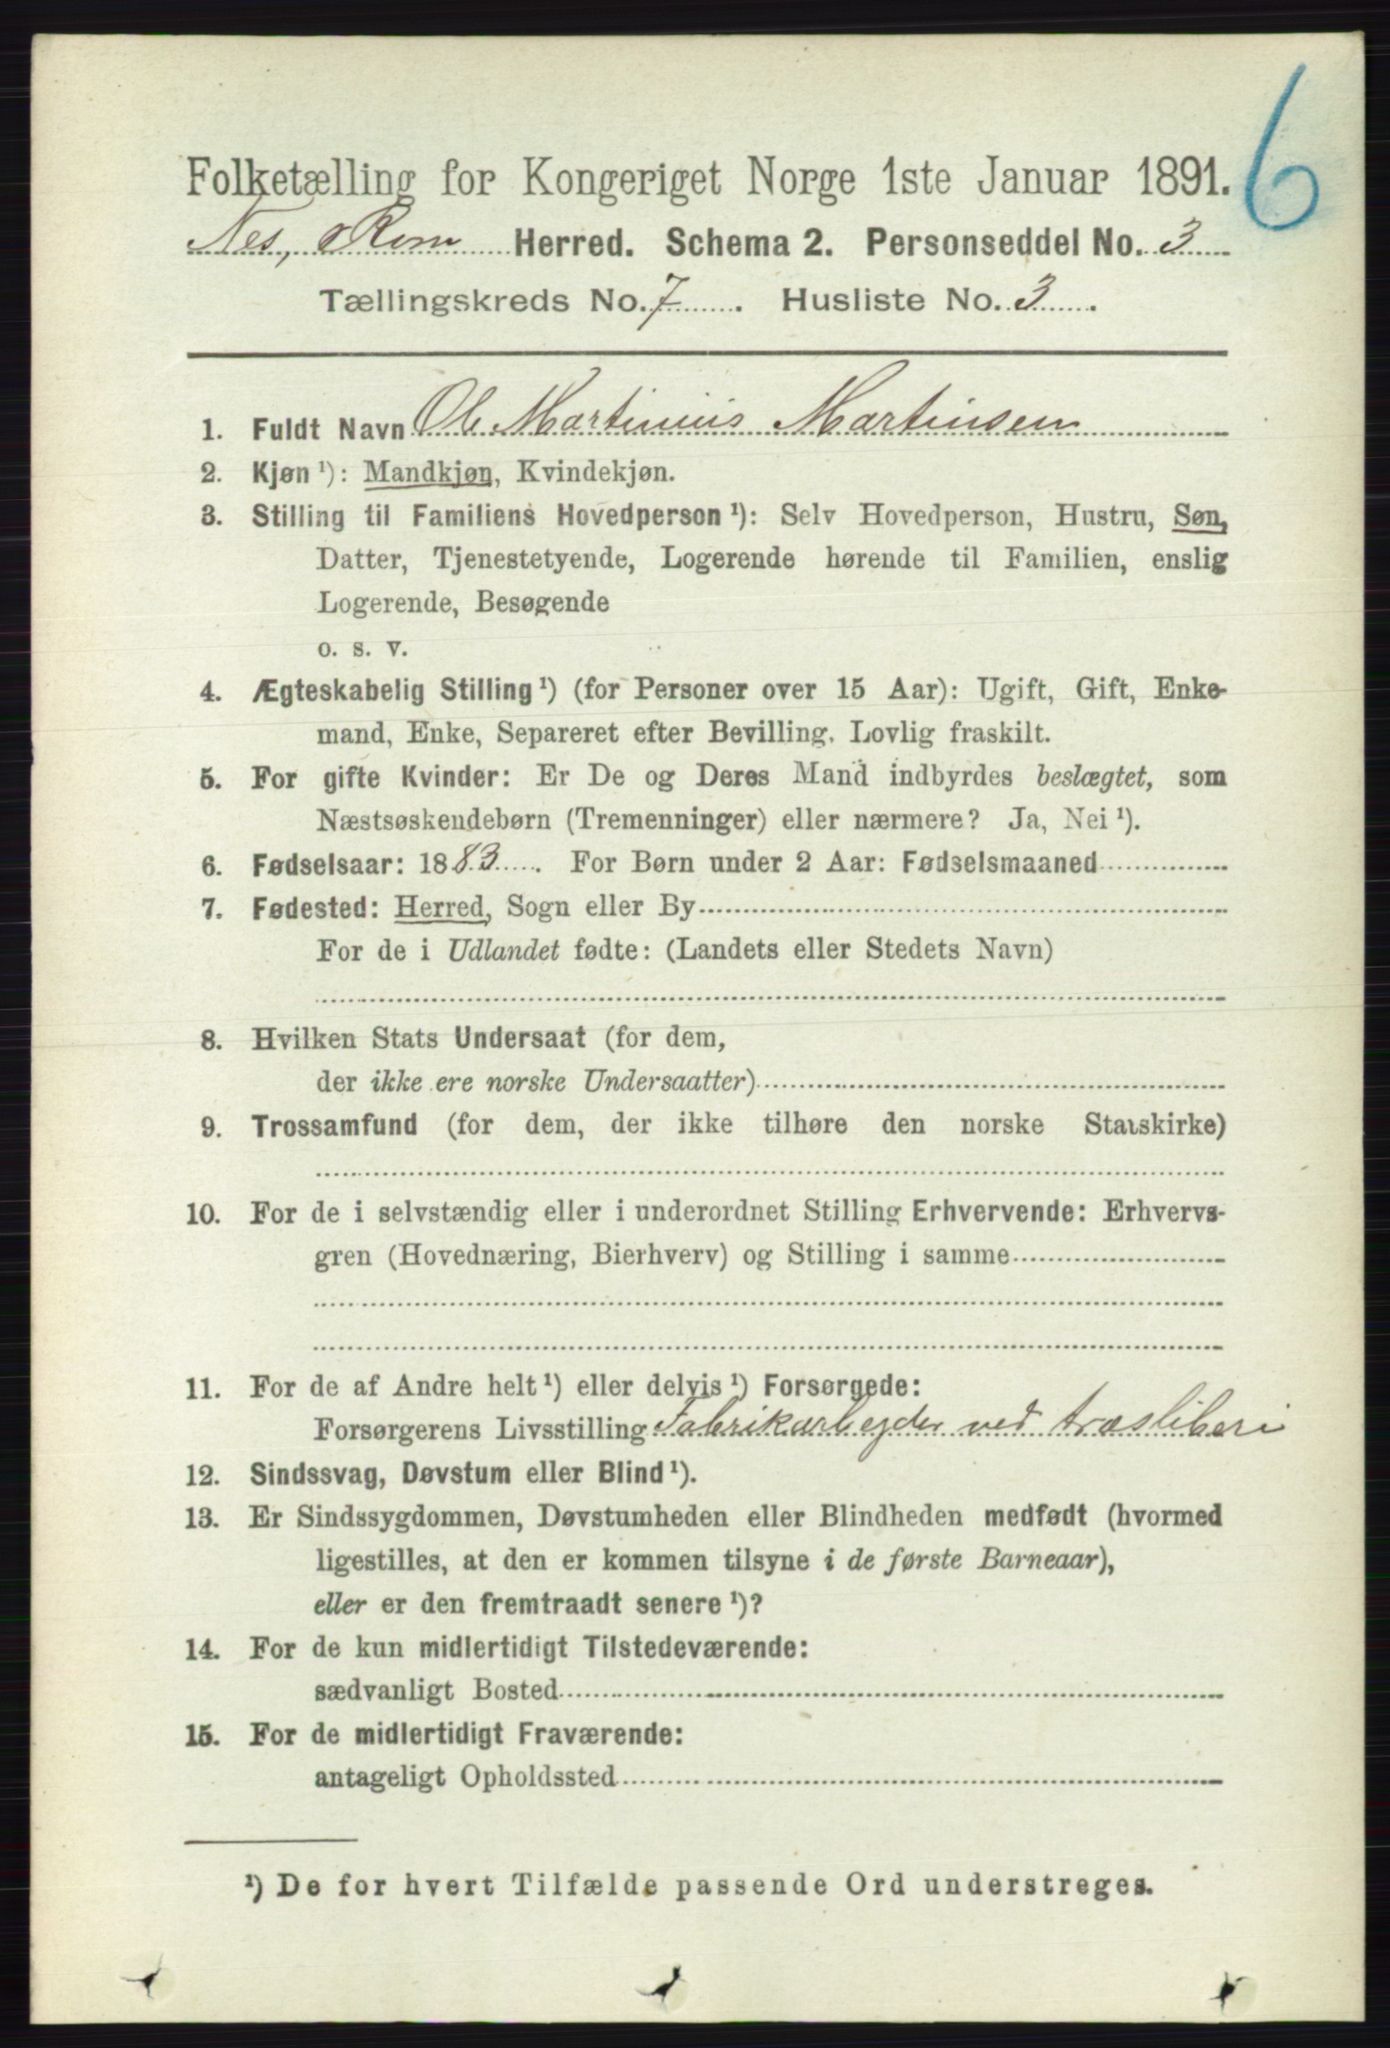 6
Folketælling for Kongeriget Norge 1ste Januar 1891.
Nes, Rom Herred. Schema 2. Personseddel No. 3
Tællingskreds No. 7. Husliste No. 3.
1. Fuldt Navn Ole Martinius Martinsen
2. Kjøn ¹): Mandkjøn, Kvindekjøn.
3. Stilling til Familiens Hovedperson ¹): Selv Hovedperson, Hustru, Søn,
Datter, Tjenestetyende, Logerende hørende til Familien, enslig
Logerende, Besøgende
o. s. v.
4. Ægteskabelig Stilling ¹) (for Personer over 15 Aar): Ugift, Gift, Enke-
mand, Enke, Separeret efter Bevilling. Lovlig fraskilt.
5. For gifte Kvinder: Er De og Deres Mand indbyrdes beslægtet, som
Næstsøskendebørn (Tremenninger) eller nærmere? Ja, Nei ¹).
6. Fødselsaar: 1883. For Børn under 2 Aar: Fødselsmaaned
7. Fødested: Herred, Sogn eller By
For de i Udlandet fødte: (Landets eller Stedets Navn)
8. Hvilken Stats Undersaat (for dem,
der ikke ere norske Undersaatter)
9. Trossamfund (for dem, der ikke tilhøre den norske Statskirke)
10. For de i selvstændig eller i underordnet Stilling Erhvervende: Erhvervs-
gren (Hovednæring, Bierhverv) og Stilling i samme
11. For de af Andre helt ¹) eller delvis ¹) Forsørgede:
Forsørgerens Livsstilling Fabrikarbeyder ved træsliberi
12. Sindssvag, Døvstum eller Blind ¹).
13. Er Sindssygdommen, Døvstumheden eller Blindheden medfødt (hvormed
ligestilles, at den er kommen tilsyne i de første Barneaar),
eller er den fremtraadt senere ¹)?
14. For de kun midlertidigt Tilstedeværende:
sædvanligt Bosted
15. For de midlertidigt Fraværende:
antageligt Opholdssted
¹) De for hvert Tilfælde passende Ord understreges.